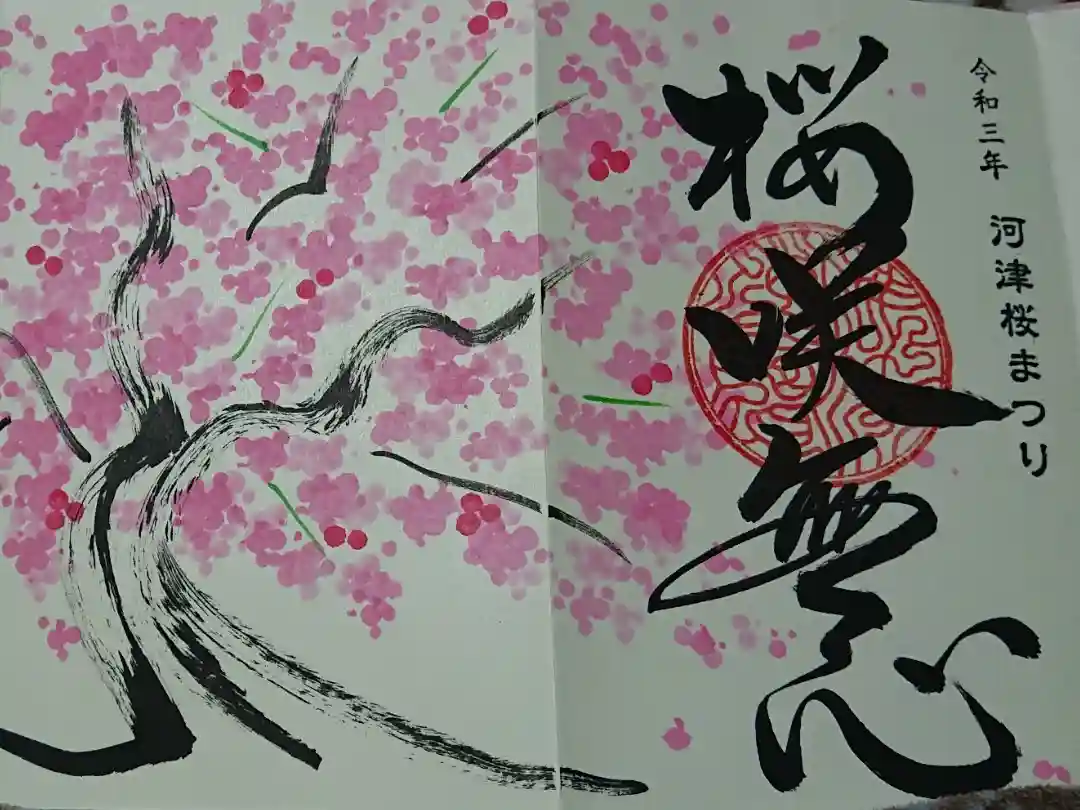 令和三年 河津桜まつり
桜咲無心